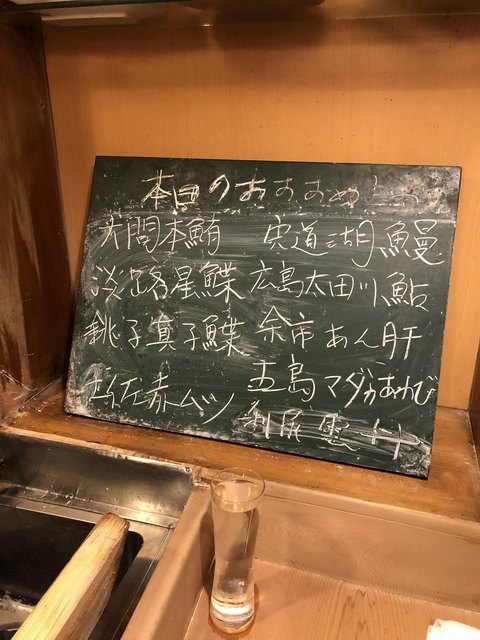 本日のおすすめ
大間本鮪
淡路星鰈
銚子真子鰈
土佐赤ムツ
宍道湖鰻
広島太田川鮎
余市あん肝
五島マダカあわび
利尻